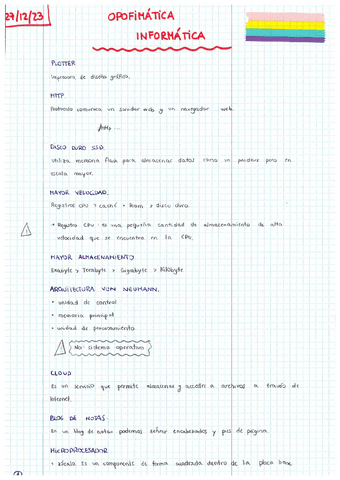 27/12/23
OPOFIMÁTICA
INFORMÁTICA
PLOTTER
Impresora de diseño gráfico.
HTTP
Protocolo comunica un servidor web y un navegador web.
http ...
DISCO DURO SSD.
Utiliza memoria flash para almacenar datos como un pendrive pero en
escala mayor.
MAYOR VELOCIDAD.
Registros CPU > caché > Ram > disco duro.
• Registro CPU: es una pequeña cantidad de almacenamiento de alta
velocidad que se encuentra en la CPU.
MAYOR ALMACENAMIENTO
Exabyte > Terabyte > Gigabyte > Kilobyte
ARQUITECTURA VON NEUMANN.
• unidad de control
• memoria principal
• unidad de procesamiento
No: sistema operativo
CLOUD
Es un servicio que permite almacenar y acceder a archivos a través de
internet.
BLOC DE NOTAS.
En un blog de notas podemos señar encabezados y pies de página.
MICROPROCESADOR
• zócalo es un componente de forma cuadrada dentro de la placa base